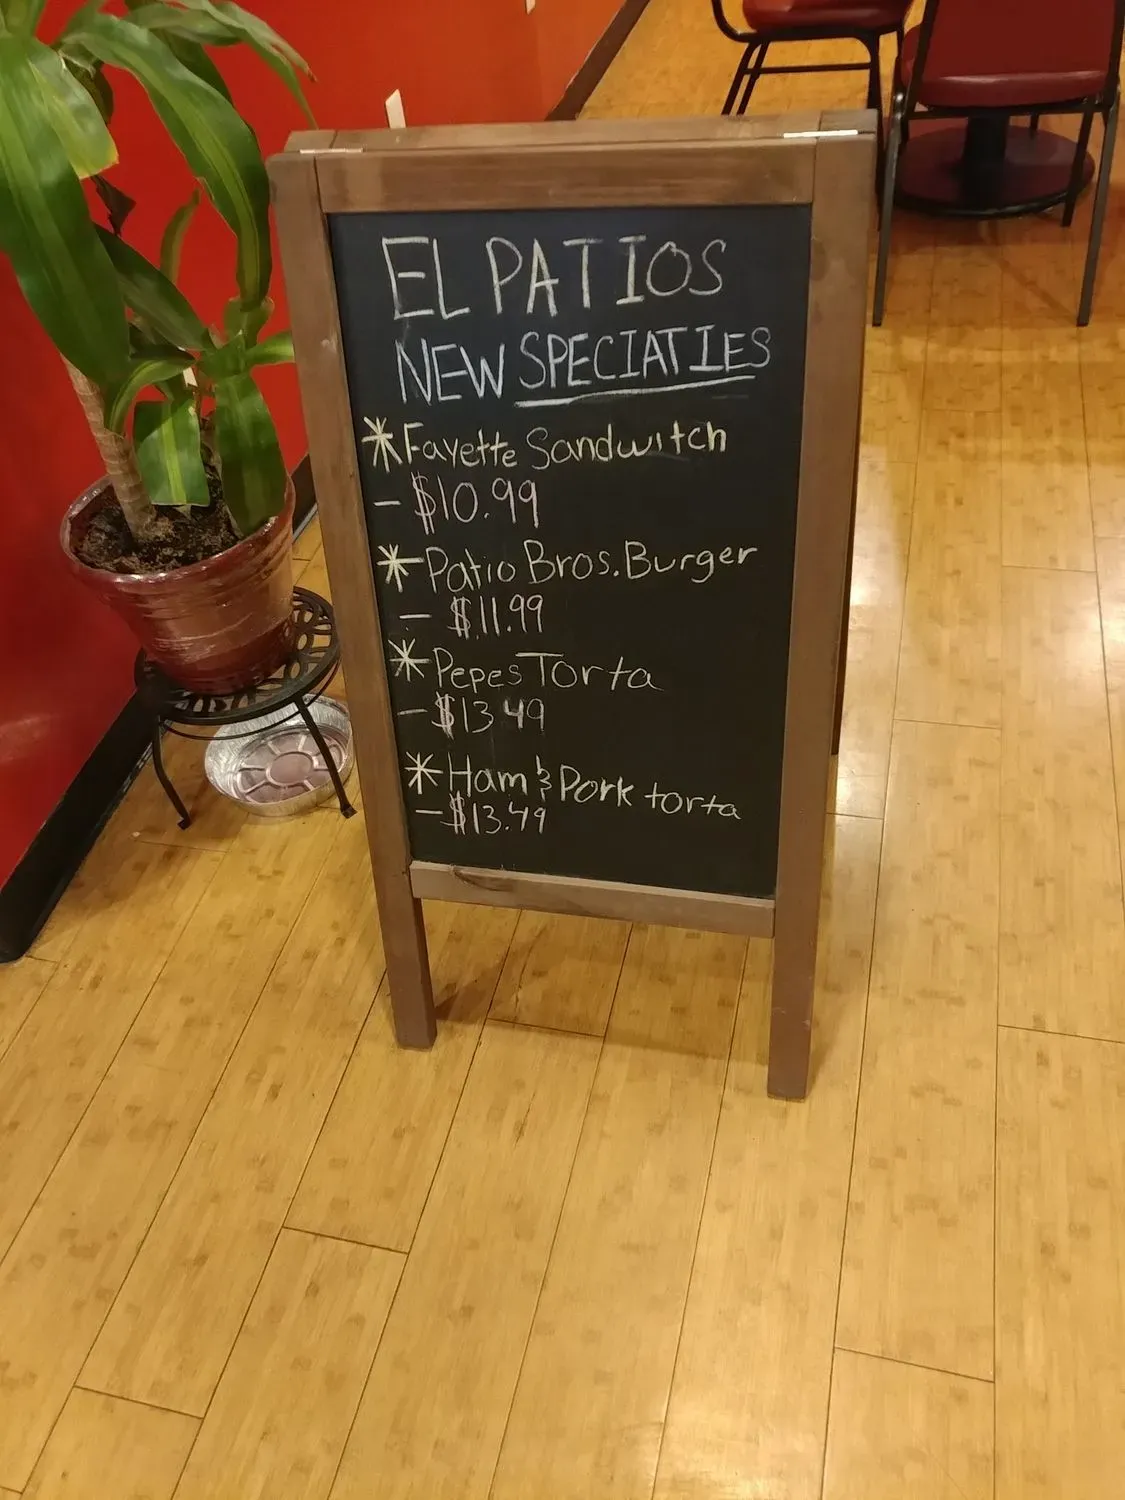 EL PATIOS
NEW SPECIATIES
* Fayette Sandwitch
- $10.99
* Patio Bros. Burger
- $11.99
* Pepes Torta
- $13.49
* Ham & Pork torta
- $13.49